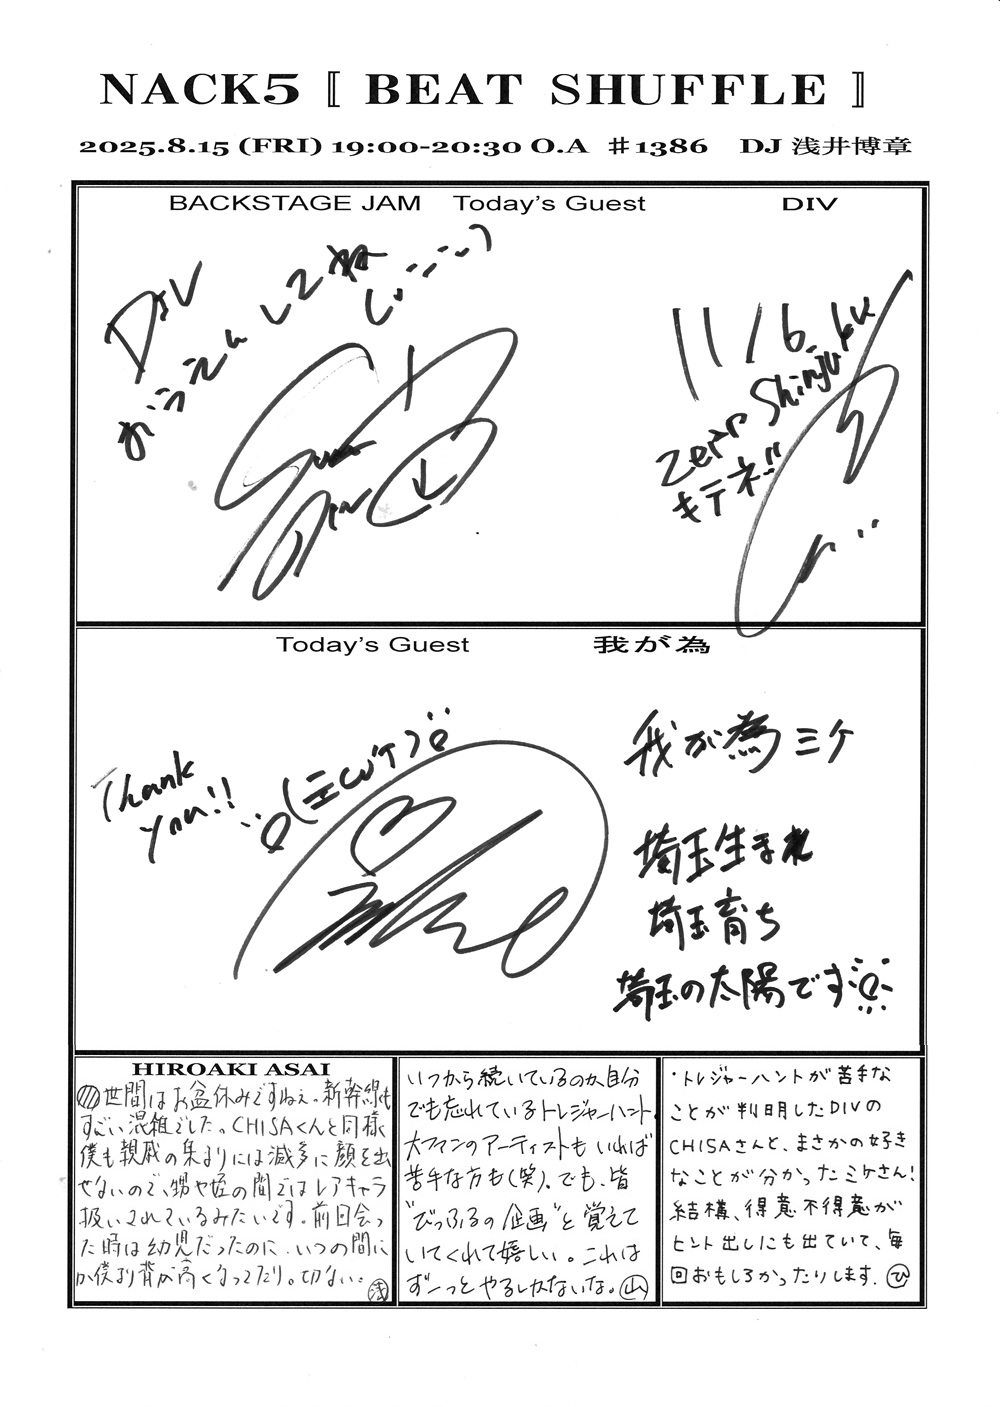 NACK5 『 BEAT SHUFFLE 』
2025.8.15 (FRI) 19:00-20:30 O.A ♯1386 DJ 浅井博章
BACKSTAGE JAM Today's Guest DIV
DIV
おうえん してね
11/6
Zepp Shinjuku
キテネ!!
Today's Guest 我が為
Thank
you!!
我が為 ミケ
埼玉生まれ
埼玉育ち
埼玉の太陽です
HIROAKI ASAI
世間はお盆休みですねぇ。新幹線も
すごい混雑でした。CHISAくんと同様
僕も親戚の集まりには滅多に顔を出
せないので、甥や姪の間ではレアキャラ
扱いされているみたいです。前回会っ
た時は幼児だったのに、いつの間に
か僕より背が高くなってたり。切ない… 浅
いつから続いているのか自分
でも忘れているトレジャーハント。
大ファンのアーティストもいれば
苦手な方も(笑)。でも、皆
"びっふるの企画"と覚えて
いてくれて嬉しい。これは
ずーっとやるしかないな。山
・トレジャーハントが苦手な
ことが判明したDIVの
CHISAさんと、まさかの好き
なことが分かったミケさん!
結構、得意不得意が
ヒント出しにも出ていて、毎
回おもしろかったりします。ひ